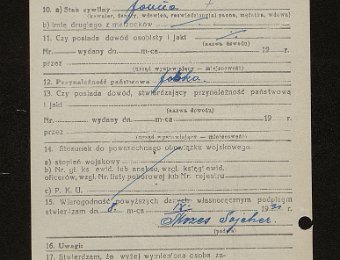 10. a) Stan cywilny
(kawaler, panny, wdowiec, rozwiedziony(a) panna, mężatka, wdowa)
b) Imię drugiego z małżonków
11. Czy posiada dowód osobisty i jaki
(nazwa dowodu)
Nr. wydany dn. m-ca 19 r.
przez
(urząd wystawiający - miejscowość)
12. Przynależność państwowa polska.
13. Czy posiada dowód, stwierdzający przynależność państwową
i jaki
(nazwa dowodu)
Nr. wydany dn. m-ca 19 r.
przez
(urząd wystawiający - miejscowość)
14. Stosunek do powszechnego obowiązku wojskowego.
a) stopień wojskowy
b) Nr. gł. ks. ewid. lub analog. wzgl. księgi ewid.
oficerów, wzgl. Nr. listy poborowej lub Nr. rejestru
c) P. K. U.
15. Wiarogodność powyższych danych własnoręcznym podpisem
stwierdzam dn. 8. m-ca IX. 193 r.
Mozes Sojcher.
(podpis)
16. Uwagi:
17. Stwierdzam, że wyżej wymieniona osoba za-